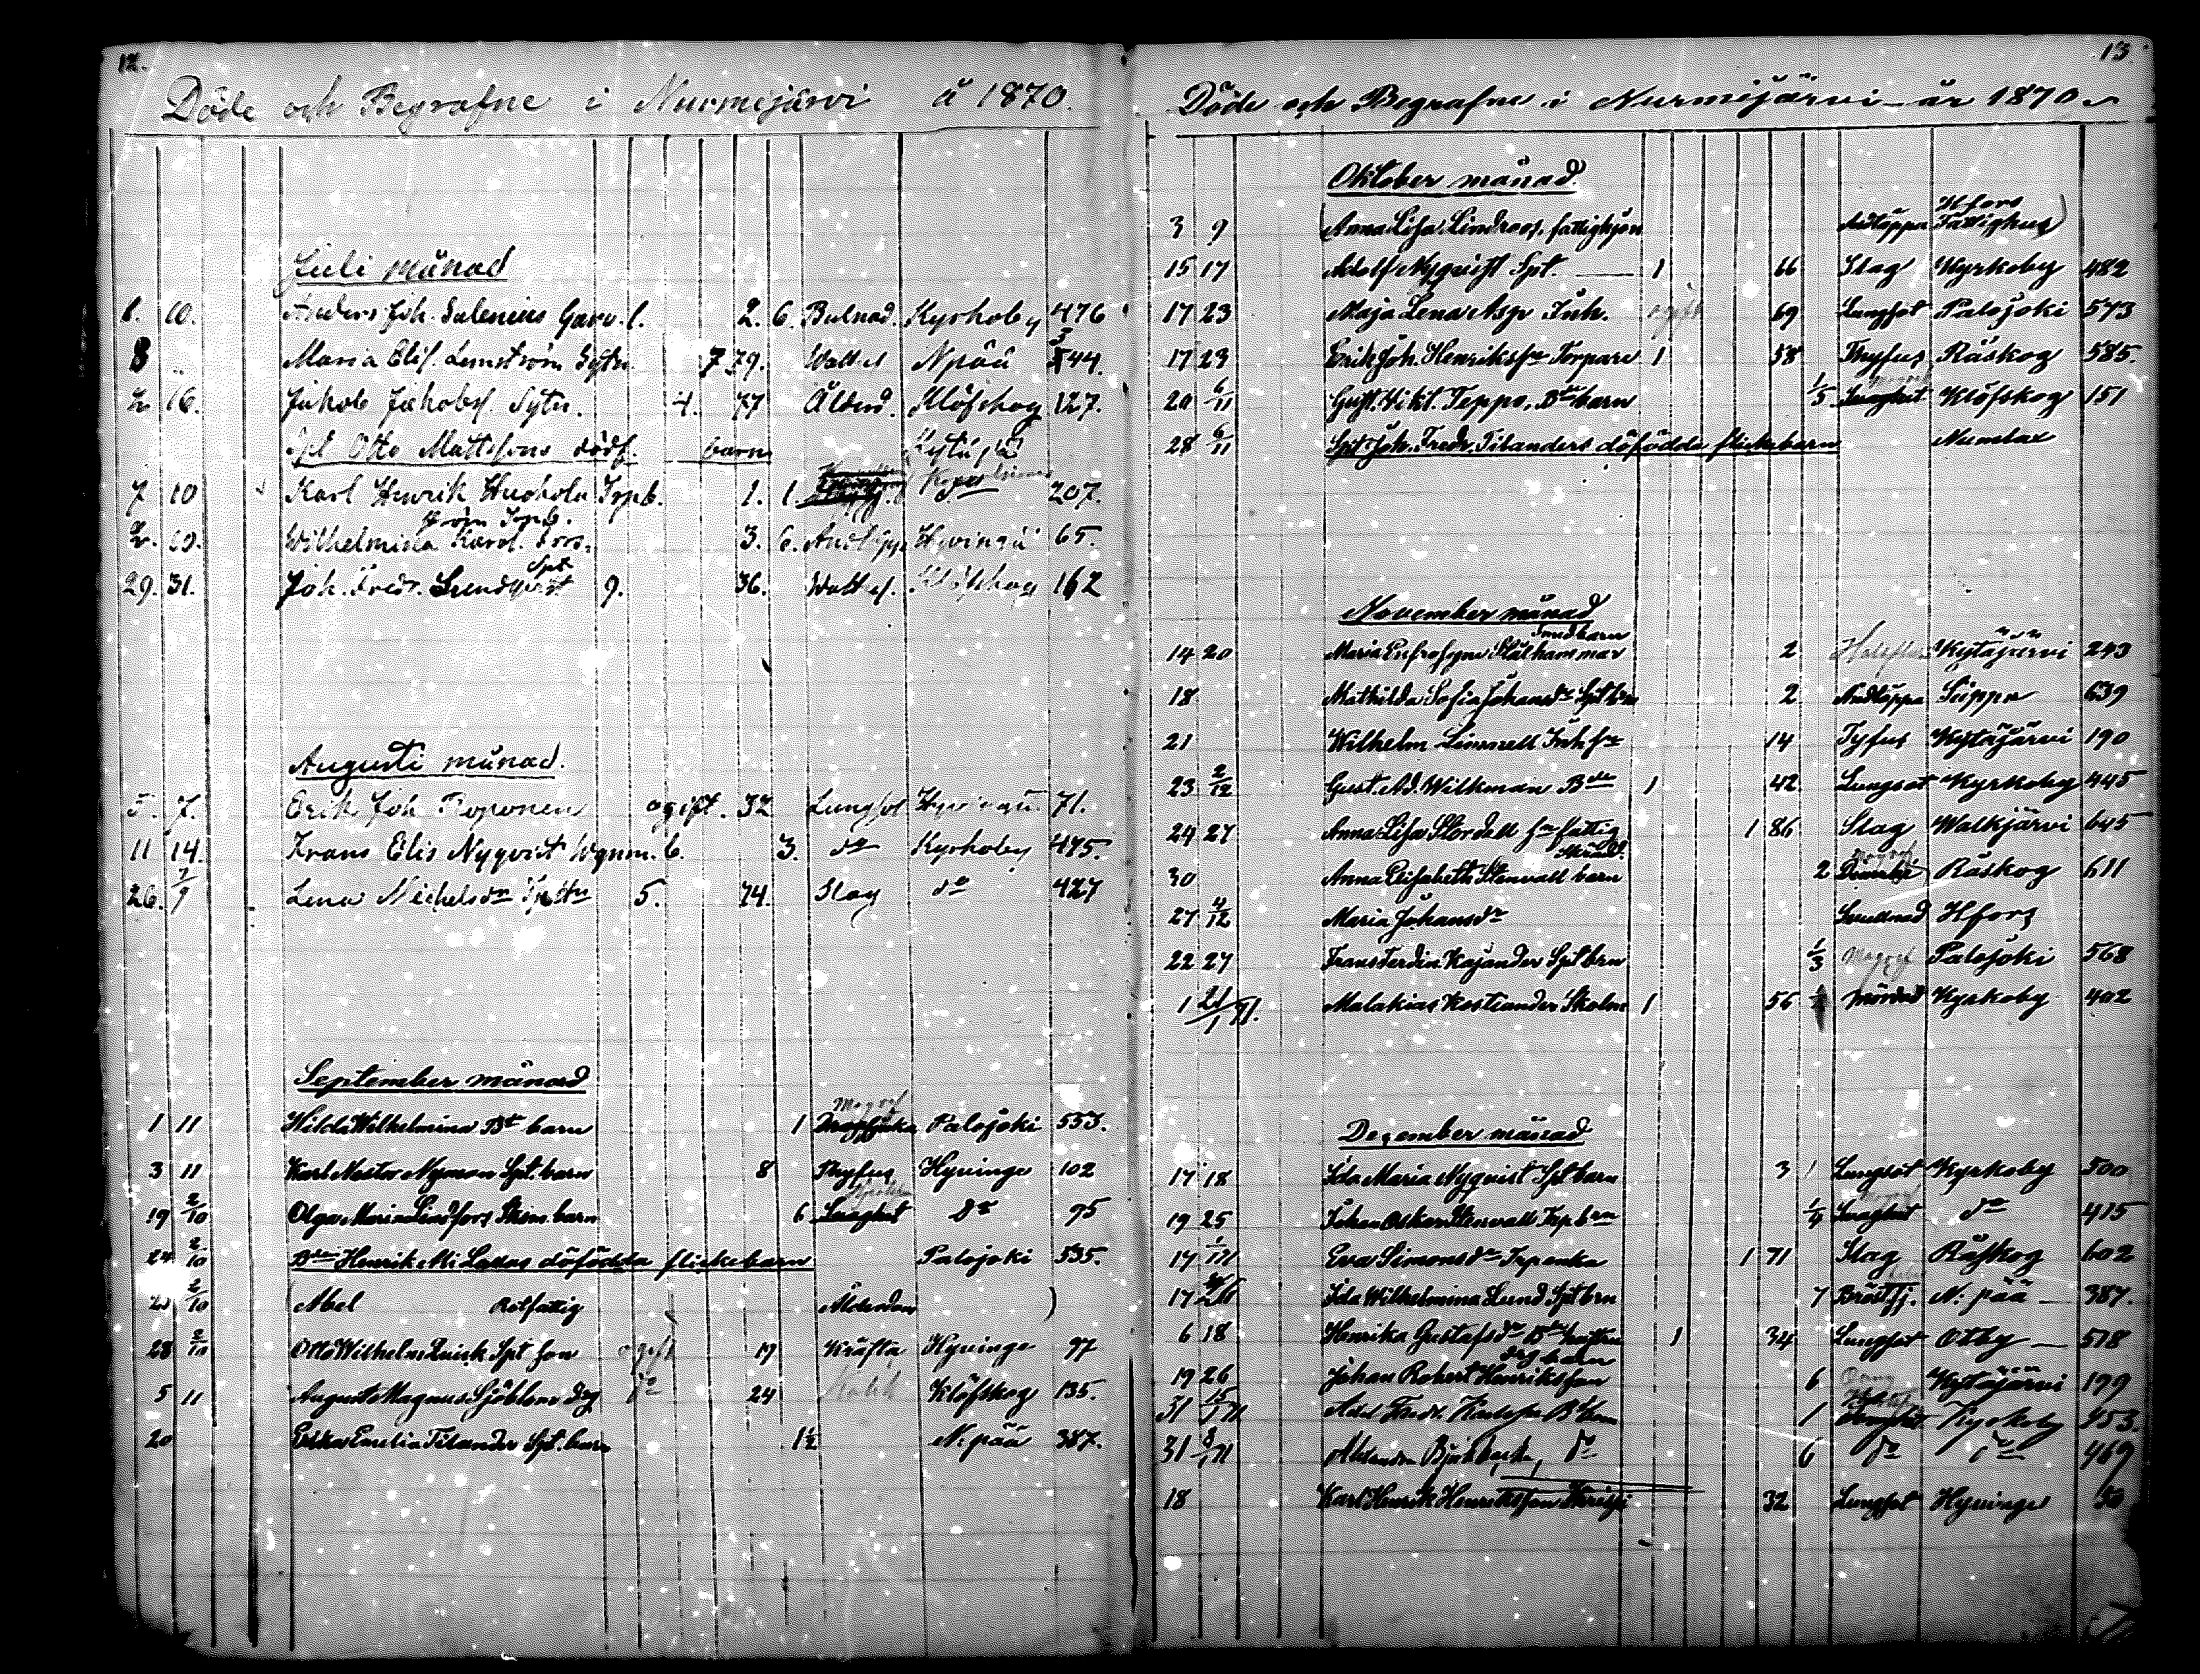 12.
Döde och Begrafne i Nurmijärvi å 1870.
Juli månad
8. 10. Anders Joh. Salenius Garv. 1. 2. 6. Bulnad. Kyrkoby 476
8 .. Maria Elis. Lemström Sytn. 7 79. Wattus N.pää 3 544.
2 16. Jakob Jakobs. Sytn. 4. 77 Ålderd. Klöfskog 127.
Spt Otto Mattssons dödf. barn
7 10 Karl Henrik Trpb. 1. 1. 207.
From Trpb.
2. 10. Wilhelmina Karol. Fors. 3. 6. Hyvingä 65.
Spt
29. 31. Joh. Fredr. Lundqvist 9. 36. Wattus. Klöfskog 162
Augusti månad.
5. 7. Erik Joh Roponen ogift. 32 Lungsot Hyvingä 71.
11 14. Frans Elis Nyqvist b. 3. do Kyrkoby 475.
26. 7/9 Lena Michelsdr 5. 74. Slag do 427
September månad
1 11 Hilda Wilhelmina Bdr barn 1 Palojoki 553.
3 11 Karl Nestor Nyman Spt. barn 8 Thyfus Hyvinge 102
19 2/10 Olga Maria Lindfors Skom. barn 6 Lungsot do 95
24 2/10 Bden Henrik Mi Laxas döfödda flickebarn Palojoki 535.
2/10 (Abel Rotfattig Ålderdom )
28 2/10 Otto Wilhelm Quick Spt son ogift 19 Kräfta Hyvinge 97
5 11 August Magnus Sjöblom drg do 24 Klöfskog 135.
20 Emelia Tilander Spt. barn 1½ N:pää 387.
13
Döde och Begrafne i Nurmijärvi år 1870.
Oktober månad.
Hfors
3 9 (Anna Lisa Lindroos, fattighjon Andtäppa Fattighus)
15 17 Adolf Nyqvist Spt. 1 66 Slag Kyrkoby 482
17 23 Maja Lena Asp Inh. ogift 69 Lungsot Palojoki 573
17 23 Erik Joh. Henriksson Torpare 1 58 Thyfus Råskog 585.
20 6/11 Gust. Vikt. Teppo, Bde barn 1/5 Lungsot Klöfskog 151
28 6/11 Spt Joh. Fredr. Tilanders döfödde flickebarn Numlax
November månad
Smedbarn
14 20 Maria Eufrosyne Stålhammar 2 Kytäjärvi 243
18 Mathilda Sofia Johansdr Spt brn 2 Andtäppa Suppa 639
21 Wilhelm Linnell Inh sn 14 Tyfus Kytäjärvi 190
23 2/12 Gust. Ad. Wilkman Bde 1 42 Lungsot Kyrkoby 445
24 27 Anna Lisa Stordell fattig 1 86 Slag Walkjärvi 645
30 Anna Elisabeth Stenvall barn 2 Råskog 611
27 4/12 Maria Johansdr Hfors
22 27 Frans Ferdin. Kajander Spt brn 1/3 Magref Palojoki 568
1 21/1 71. Malakias Kostiander Skolm 1 56 Mördad Kyrkoby 402
Dezember månad
17 18 Ida Maria Nyqvist Spt barn 3 Lungsot Kyrkoby 500
19 25 Johan Oskar Stenvall Trp brn 1/4 Lungsot do 415
17 1/1 71 Eva Simonsdr Trpenka 1 71 Slag Råskog 602
17 Ida Wilhelmina Lund Spt brn 7 Bröstsj. N:pää 387.
6 18 Henrika Gustafsdr 1 34 Lungsot Otby 518
drg barn
19 26 Johan Robert Henriksson 6 Kytäjärvi 199
31 15/1 71 Fredr. 1 Kyrkoby 453.
31 8/1 71 Björkbacka, do 6 do do 469
18 Karl Henrik Henriksson 32 Lungsot Hyvinge 50